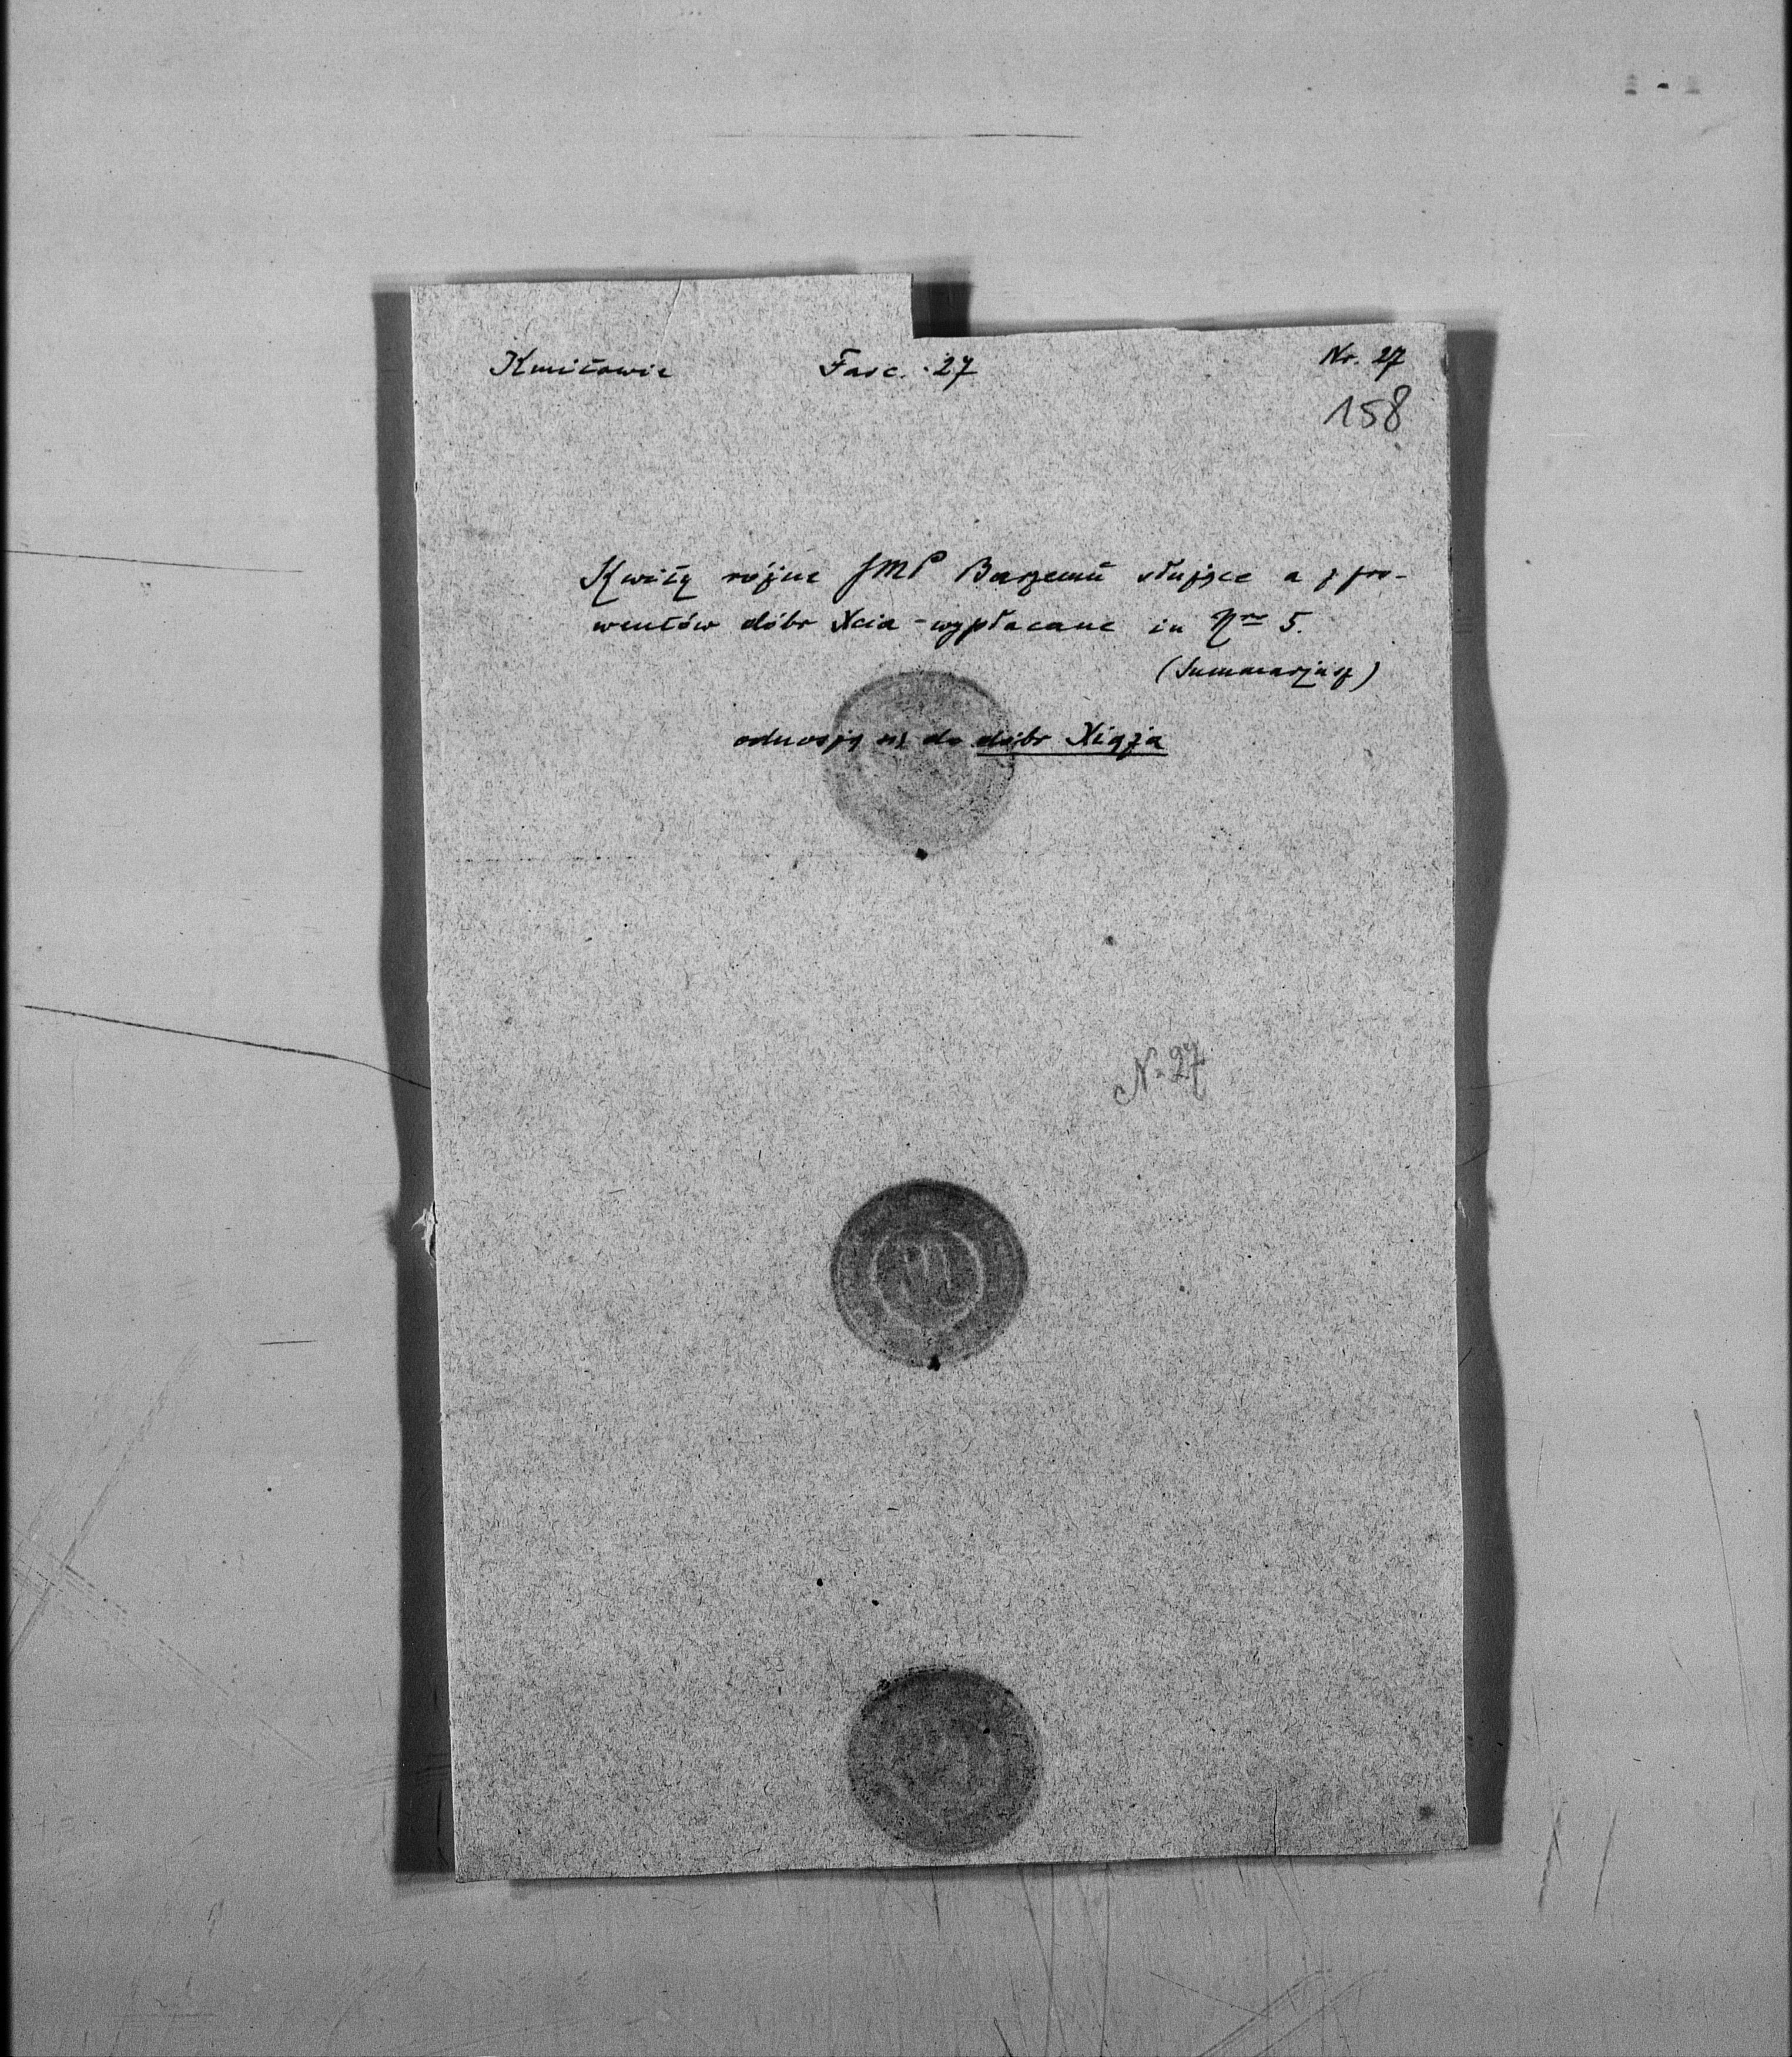 Kmitowie Fasc. 27 Nr. 27
158
Kwity różne JMP Barzemu służące a z pro-
wentów dóbr Xcia - wypłacane in Nro 5.
(Summarjusz)
odnoszą się do dóbr Xiąża
N. 27